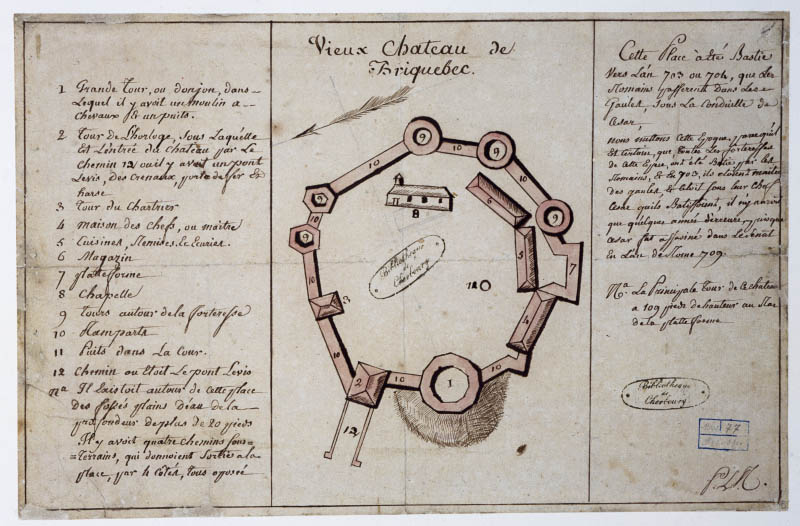 Vieux Chateau de
Briquebec.
1 Grande Tour, ou donjon, dans
Lequel il y avoit un moulin a
chevaux & un puits.
2 Tour de L'horloge, Sous Laquelle
Est L'entrée du Chateau par Le
Chemin 12 ou il y avoit un pont
Levis, Des Crenaux, porte de fer &
harse
3 Tour du Chartrier
4 maison des chefs, ou maitre
5 Cuisines, Remises, Ecuries.
6 Magazin
7 platteforme
8 Chapelle
9 Tours autour de la forteresse
10 Remparts
11 Puits dans La Cour.
12 Chemin ou Etoit Le pont Levis
Na Il Existoit autour de Cette place
Des fossés plains D'eau de la
profondeur de plus de 20 pieds
Il y avoit quatre chemins sou=
=Terrains, qui donnoient Sortie a la
place, par 4 Cotés, Tous opposé
9
9
10
10
6
9
9
9
8
10
5
7
11
3
10
4
10
10
2
10
1
12
Bibliothèque
de
Cherbourg
Cette Place à été Bastie
Vers L'an 703 ou 704, que Les
Romains passerent Dans Les
Gaules, Sous La Conduitte de
Cesar
nous mettons Cette Epoque, parce qu'il
Est Certain, que toutes Les forteresses
de Cette Espece, ont été Batie par les
Romains, & En 703, ils etoient maitre
des gaules, & C'etoit sous leur Chef
Cesar qu'ils Batissoient, il n'y auroit
que quelques année d'erreure, puisque
Cesar fut assasiné dans Le Senat
En L'an de Rome 709.
Na. La Principale Tour de Ce chateau
a 109 pieds de hauteur au
de la platte forme
Bibliothèque
de
Cherbourg
77